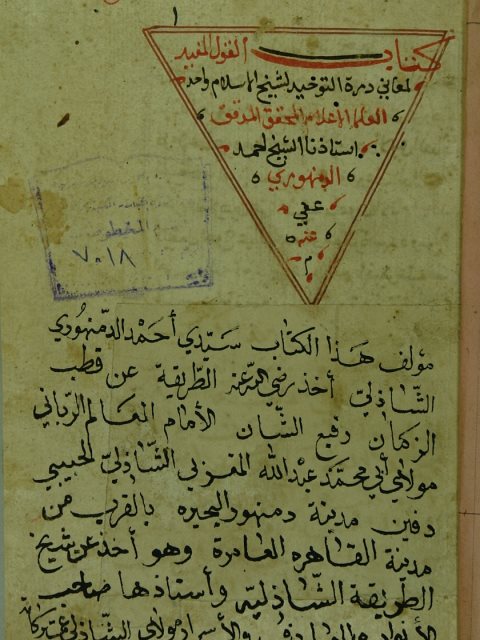 ١
كتاب القول المفيد
لمعاني درة التوحيد لشيخ الاسلام واحد
العلما الاعلام المحقق المدقق
استاذنا الشيخ احمد
الدمنهوري
عفي
عنه
م
المخطوطات
٧٠١٨
مؤلف هذا الكتاب سيدي أحمد الدمنهوري
الشاذلي أخذ رضي الله عنه الطريقة عن قطب
الزمان رفيع الشان الأمام العالم الرباني
مولاي أبي محمد عبد الله المغربي الشاذلي الحبيبي
دفين مدينة دمنهور البحيره بالقرب من
مدينة القاهره العامرة وهو أخذ عن شيخ
الطريقة الشاذلية وأستاذها صاحب
والأسرار مولاي الشاذلي